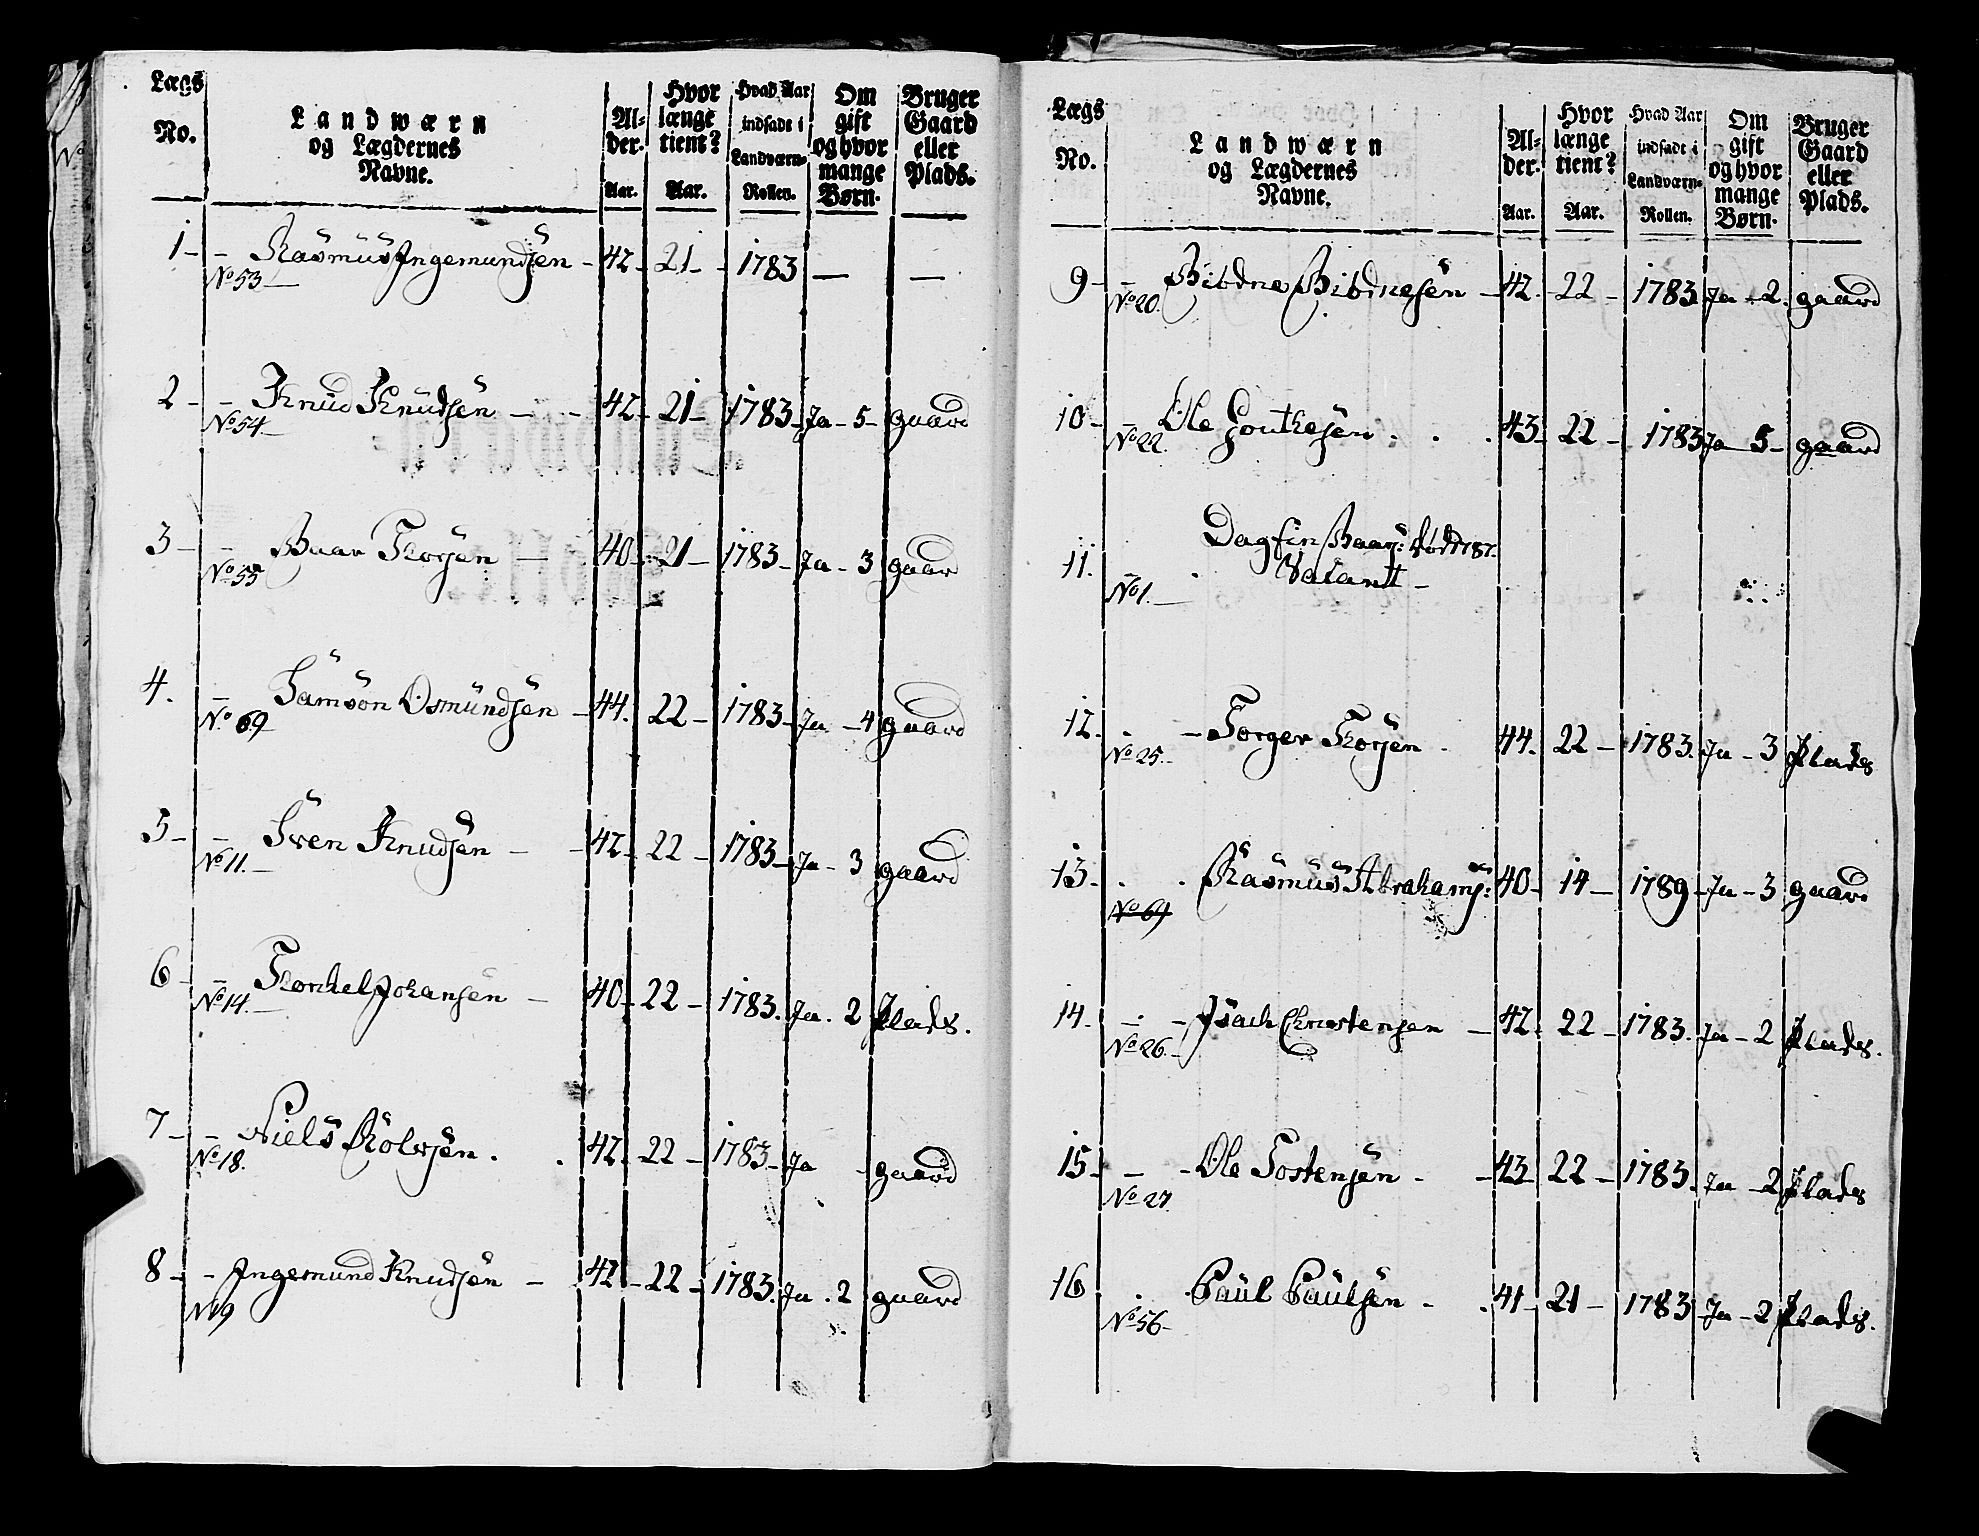 Lægs No. | Landwærn og Lægdernes Navne. | Al- der. Aar. | Hvor længe tient? Aar. | Hvad Aar indsadt i Landværn- Rollen. | Om gift og hvor mange Børn. | Bruger Gaard eller Plads.
1 - - Rasmus Ingemundsen - 42 - 21 - - 1783 — —
No 53
2 - - Knud Knudsen - - 42 - 21 - 1783 - Ja - 5 - gaard
No 54
3 - - Baar Thorsen - 40 - 21 - 1783 - Ja - 3 gaard
No 55
4. - Samson Osmundsen - 44. 22 - 1783 - Ja - 4 gaard
No 69
5 - - Sven Knudsen - - 42 - 22 - 1783 - Ja - 3 gaard
No 11.
6 - - Thorkel Johansen - 40 - 22 - 1783. Ja. 2 Plads.
No 14.
7 - - Niels Rolvsen . . 42. 22 - 1783 - Ja - gaard
No 18.
8 - - Ingemund Knudsen - . 42 - 22 - 1783. Ja . 2 gaard
No 19
Lægs No. | Landwærn og Lægdernes Navne. | Al- der. Aar. | Hvor længe tient? Aar. | Hvad Aar indsadt i Landværn- Rollen. | Om gift og hvor mange Børn. | Bruger Gaard eller Plads.
9 - - Biödne Biödnesen - 42. - 22 - 1783. Ja - 2. gaard
No 20.
10 - Ole Gouthesen . . . 43 - 22 - 1783 Ja 5 - gaard
No 22.
Dagfin Baars: död 1787.
11. - . Vacant -
No 1.
12. - Torger Thorsen . 44. 22 - 1783. Ja - 3 Plads
No 25.
13 - . . Rasmus Abrahams: 40 - 14 - 1789 - Ja - 3 gaard
No 69
14. - - Isach Christensen - 42. 22 - 1783. Ja - 2 Plads.
No 26.
15 - - - Ole Tostensen - - 43 - 22 - 1783. Ja - 2 Plads
No 27
16 . Paul Paulsen - . 41 - 21 - 1783 Ja - 2 Plads.
No 56 -